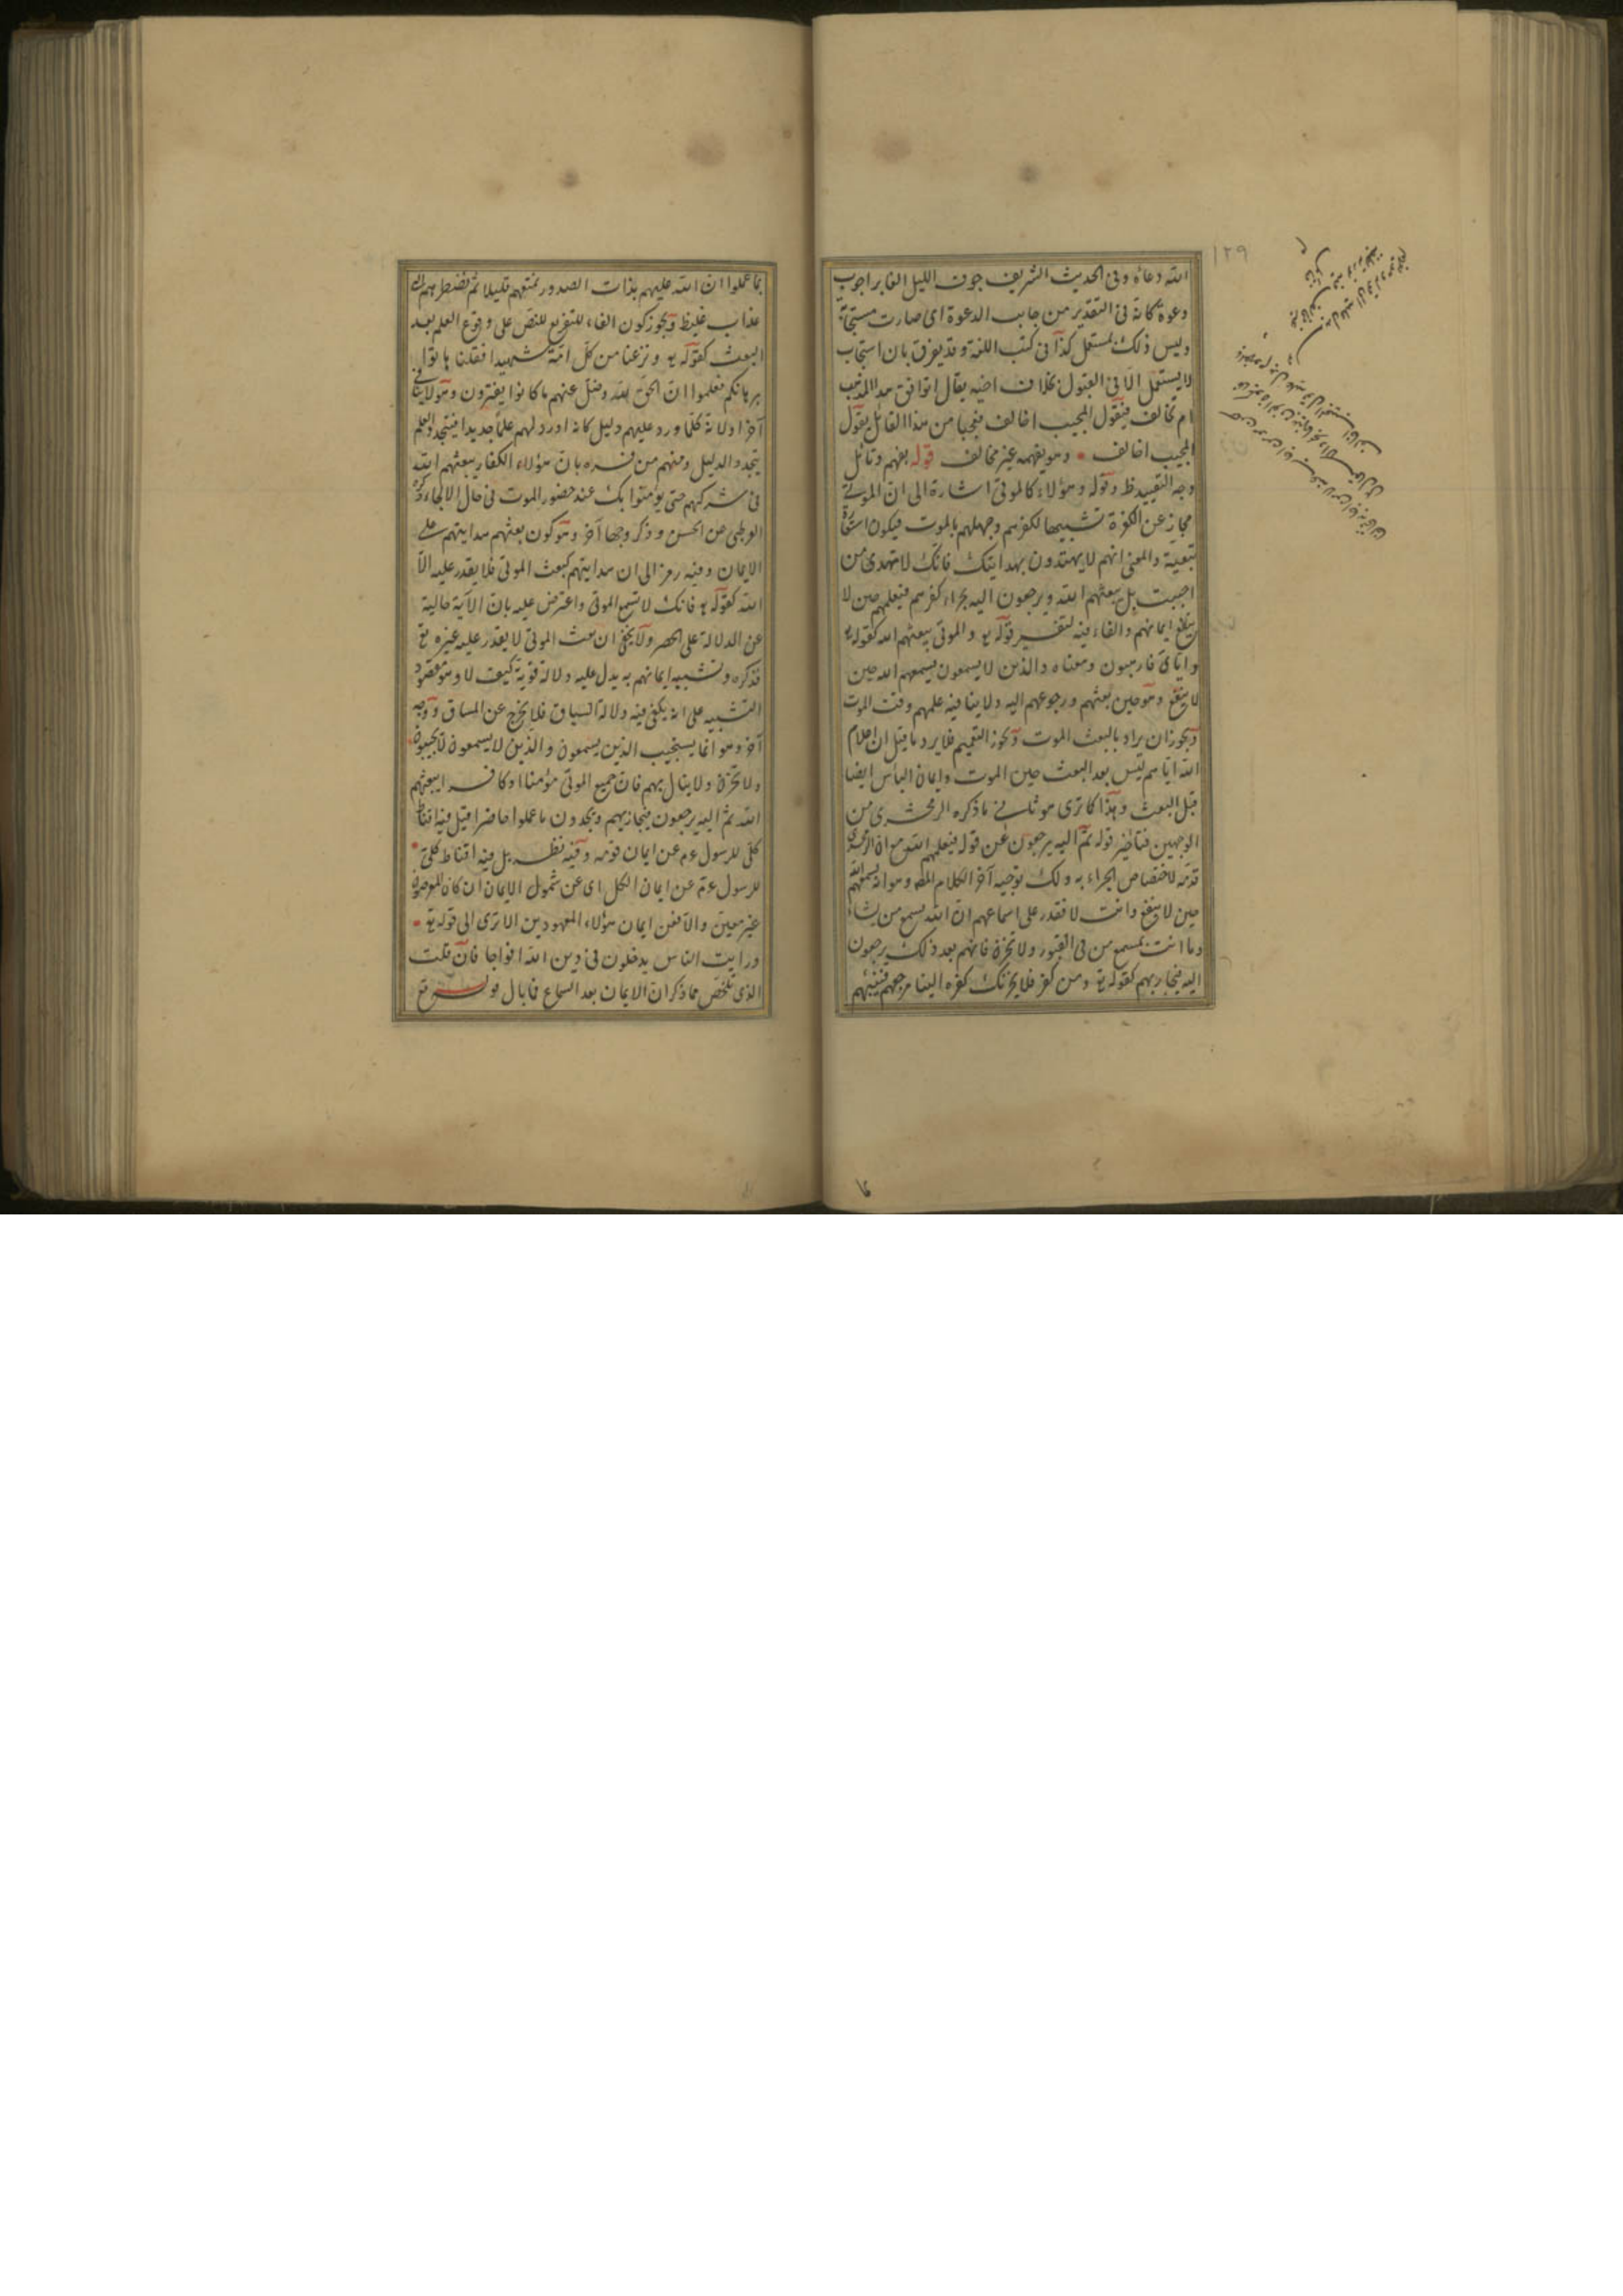 الله دعاه وفى الحديث الشريف جوف الليل الغابر اجوب
دعوة كانه فى التقدير من جابت الدعوة اى صارت مستجابة
وليس ذلك بمستعمل كذا فى كتب اللغة وقد يفرق بان استجاب
لا يستعمل الا فى القبول بخلاف اخيه يقال اتوافق هذا المذهب
ام تخالف فيقول المجيب اخالف فيجيبا من هذا القائل يقول
المجيب اخالف وهو يفهمه غير مخالف قوله بفهم وتأمل
وجه التقييد ظ وقوله وهؤلاء كالموتى اشارة الى ان الموتى
مجاز عن الكفرة تشبيها لكفرهم وجهلهم بالموت فيكون استعارة
تبعية والمعنى انهم لا يهتدون بهدايتك فانك لا تهدى من
احببت بل يبعثهم الله ويرجعون اليه بجزاء كفرهم فيعلمهم حين لا
ينفع ايمانهم والفاء فيه لتفسير قوله تع والموتى يبعثهم الله كقوله تع
واياى فارهبون ومعناه والذين لا يسمعون يسمعهم الله حين
لا ينفع وهو حين بعثهم ورجوعهم اليه ولا ينافيه علمهم وقت الموت
ويجوز ان يراد بالبعث الموت ويجوز التعميم فلا يرد ما قيل ان اعلام
الله اياهم ليس بعد البعث حين الموت وايمان اليأس ايضا
قبل البعث وهذا كما ترى هو ثانى ما ذكره الزمخشرى من
الوجهين فتأخير قوله ثم اليه يرجعون عن قوله فيعلمهم الله مع ان الزمخشرى
قدمه لاختصاص الجزاء به ولك توجيه آخر الكلام المص وهو انه يسمعهم الله
حين لا ينفع وانت لا تقدر على اسماعهم ان الله يسمع من يشاء
وما انت بمسمع من فى القبور ولا تحزن فانهم بعد ذلك يرجعون
اليه فيجازيهم كقوله تع ومن كفر فلا يحزنك كفره الينا مرجعهم فننبئهم
بما عملوا ان الله عليم بذات الصدور نمتعهم قليلا ثم نضطرهم الى
عذاب غليظ ويجوز كون الفاء للتفريع للنص على وقوع العلم بعد
البعث كقوله تع ونزعنا من كل امة شهيدا فقلنا هاتوا
برهانكم فعلموا ان الحق لله وضل عنهم ما كانوا يفترون وهؤلاء
آخرا ولانه كلما ورد عليهم دليل كانه اورد لهم علما جديدا فيتجدد العلم
بتجدد الدليل ومنهم من فسره بان هؤلاء الكفار يبعثهم الله
فى شركهم حتى يؤمنوا بك عند حضور الموت فى حال الالجاء ذكره
القرطبى عن الحسن وذكر وجها آخر وهو كون بعثهم هدايتهم على
الايمان وفيه رمز الى ان هدايتهم كبعث الموتى فلا يقدر عليه الا
الله كقوله تع فانك لا تسمع الموتى واعترض عليه بان الآية خالية
عن الدلالة على الحصر ولا يخفى ان بعث الموتى لا يقدر عليه غيره تع
فذكره وتشبيه ايمانهم به يدل عليه دلالة قوية كيف لا وهو مقصود
التشبيه على انه يكفى فيه دلالة السياق فلا يخرج عن المساق ووجه
آخر وهو انما يستجيب الذين يسمعون والذين لا يسمعون لا يجيبون
ولا تحزن ولا ينال بهم فان جميع الموتى مؤمنا او كافرا يبعثهم
الله ثم اليه يرجعون فيجازيهم ويجدون ما عملوا حاضرا قيل فيه اقناط
كلى للرسول عم عن ايمان قومه وفيه نظر بل فيه اقناط كلى
للرسول عم عن ايمان الكل اى عن شمول الايمان ان كان الموصول
غير معين والا فعن ايمان هؤلاء المعهودين الا ترى الى قوله تع
ورأيت الناس يدخلون فى دين الله افواجا فان قلت
الذى تلخص مما ذكر ان الايمان بعد السماع فما بال قوله تع
١٢٩